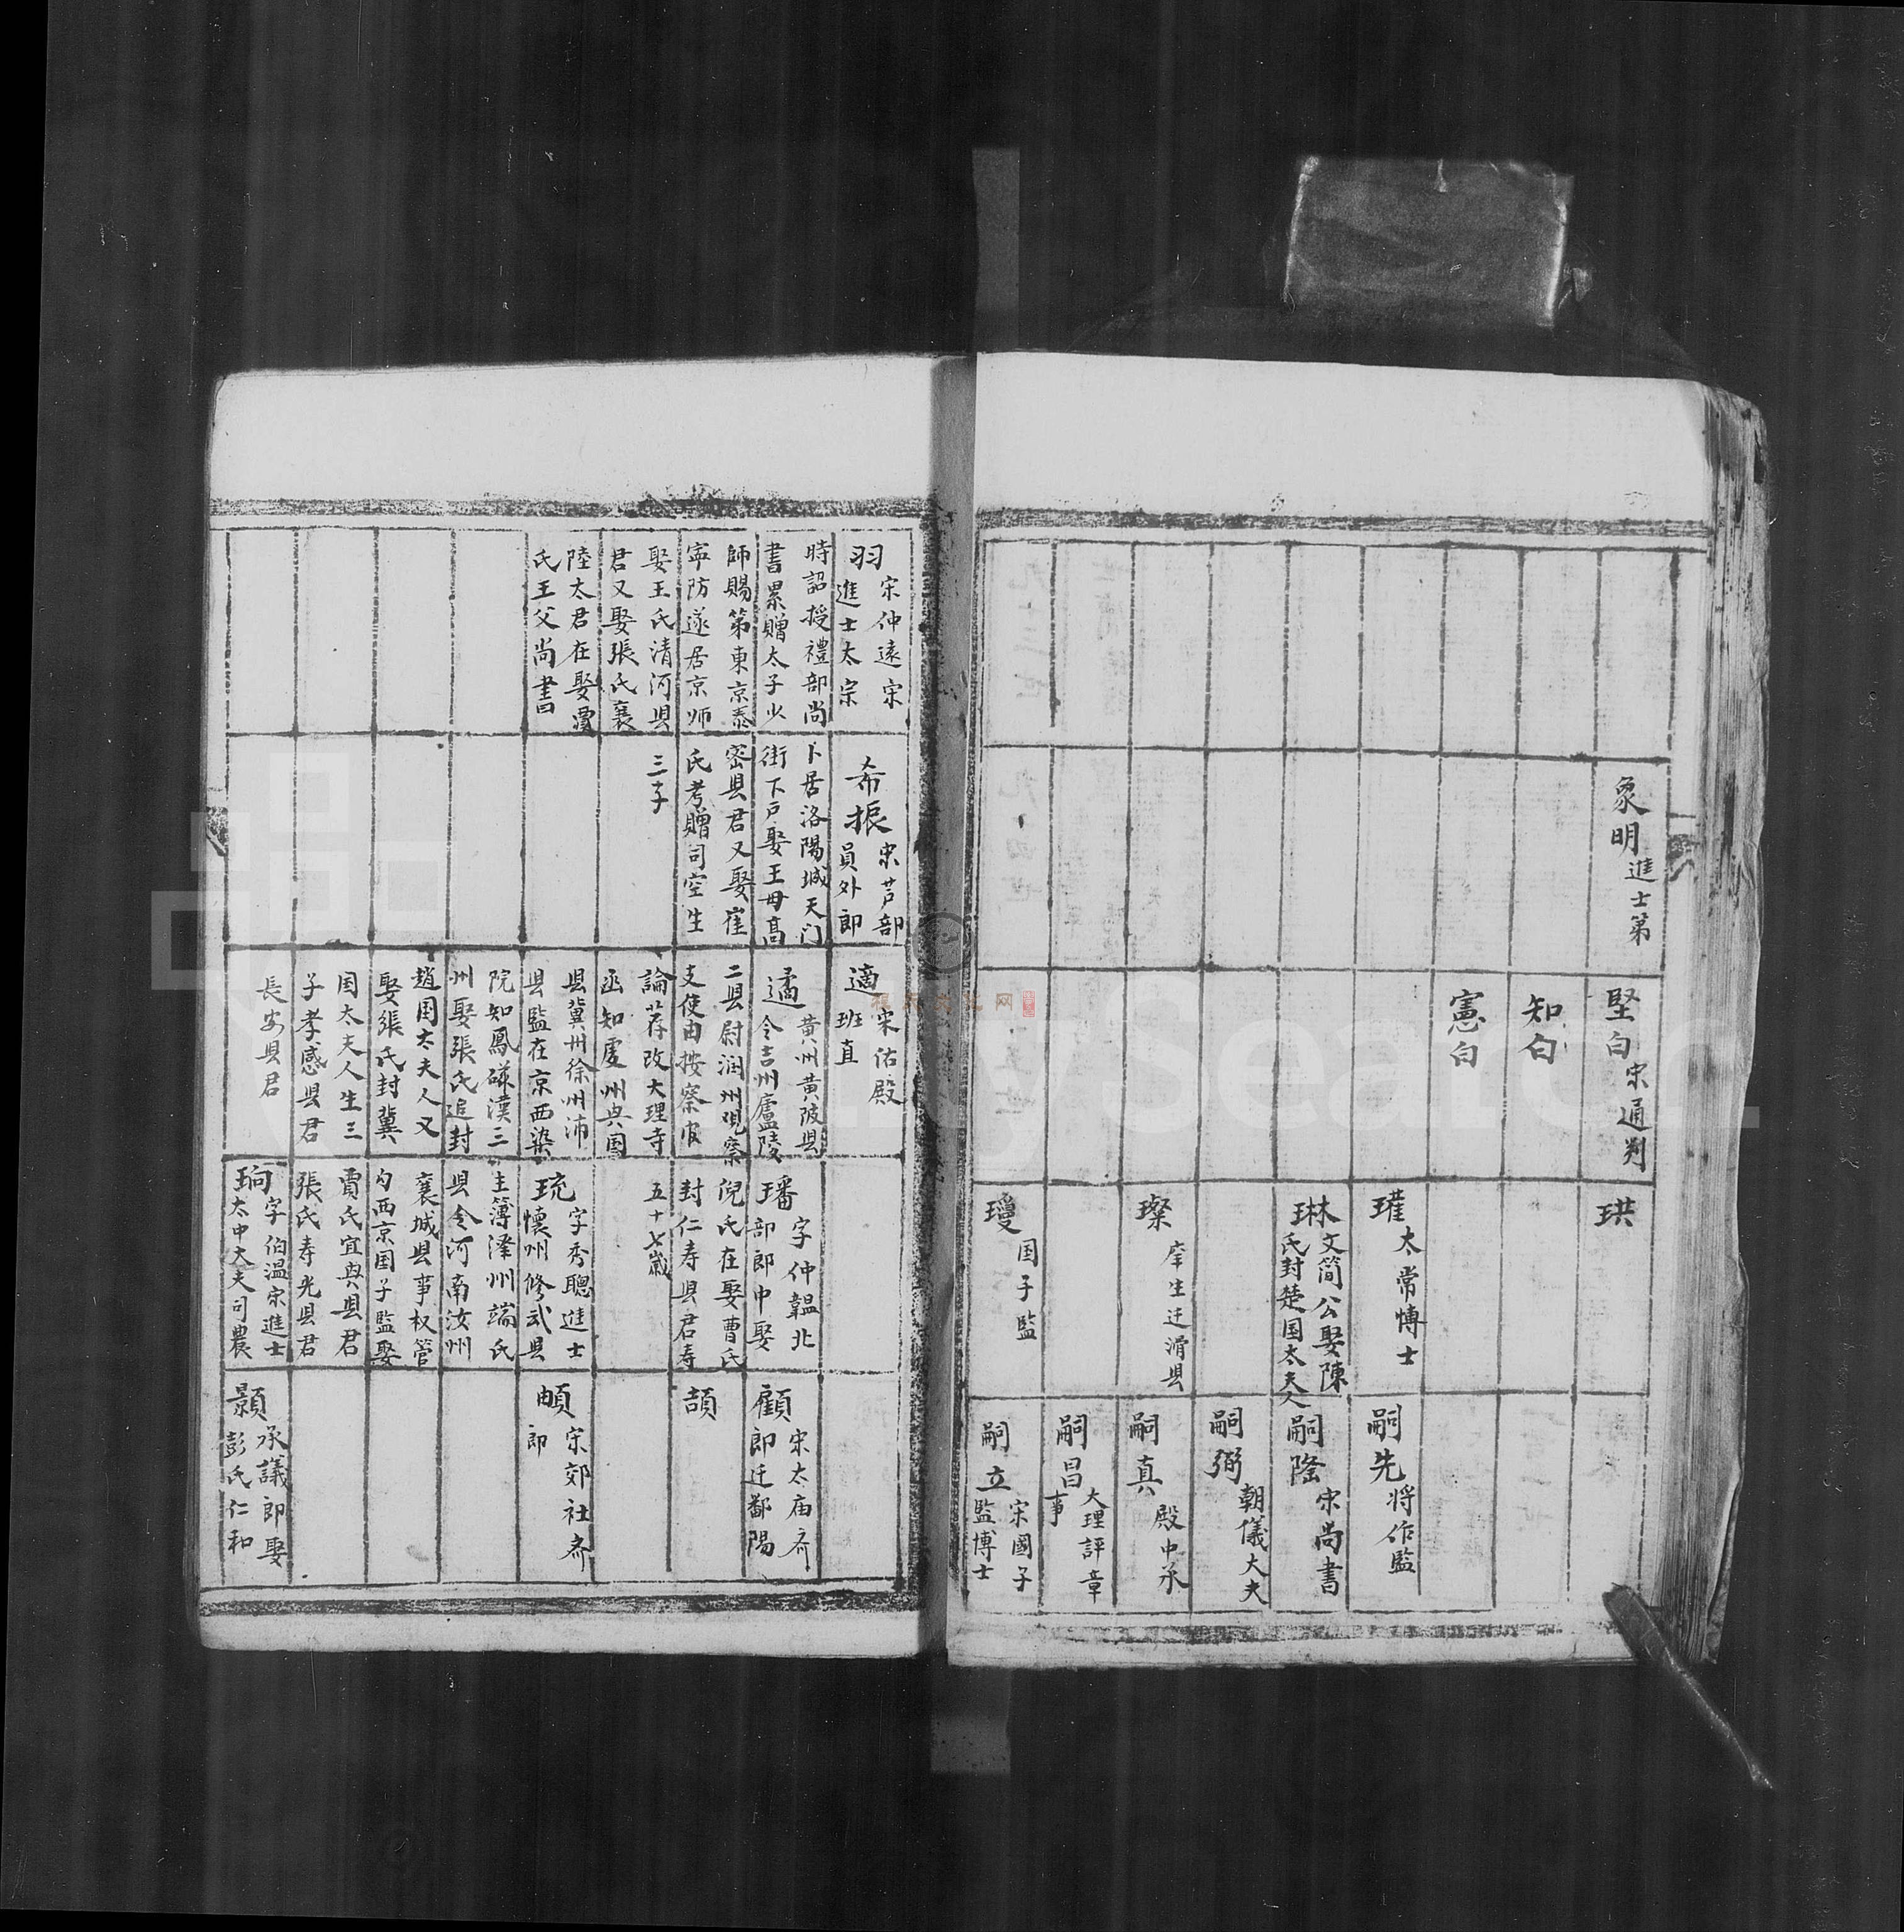 象明
進士第
堅白
宋通判
知白
憲白
珙
璀
太常博士
琳
文简公娶陳
氏封楚国太夫人
璨
庠生迁滑县
璦
国子監
嗣先
将作監
嗣隆
宋尚書
嗣弼
朝儀大夫
嗣真
殿中丞
嗣昌
大理評章
事
嗣立
宋國子
監博士
羽
宋仲遠宋
進士太宗
時詔授禮部尚
書累贈太子少
師賜第東京泰
寧防遂居京师
娶王氏清河县
君又娶張氏襄
陸太君在娶
氏王父尚書
希振
宋芦部
員外郎
卜居洛陽城天门
街下戶娶王毋高
密县君又娶崔
氏考贈司空生
三子
適
宋佑殿
班直
遹
黄州黄陂县
令吉州廬陵
二县尉润州观察
支使由按察官
論荐改大理寺
丞知虔州兴国
县冀州徐州沛
县監在京西染
院知鳳磁漢三
州娶張氏追封
趙国太夫人又
娶張氏封冀
国太夫人生三
子孝感县君
長安县君
璠
字仲韞北
部郎中娶
倪氏在娶曹氏
封仁寿县君寿
五十七歲
珫
字秀聰進士
懷州修武县
主簿泽州端氏
县令河南汝州
襄城县事权管
勾西京国子監娶
賈氏宜兴县君
張氏寿光县君
珦
字伯温宋進士
太中大夫司農
顧
宋太庙斋
郎迁鄱陽
頡
頔
宋郊社斋
郎
顥
承議郎娶
彭氏仁和